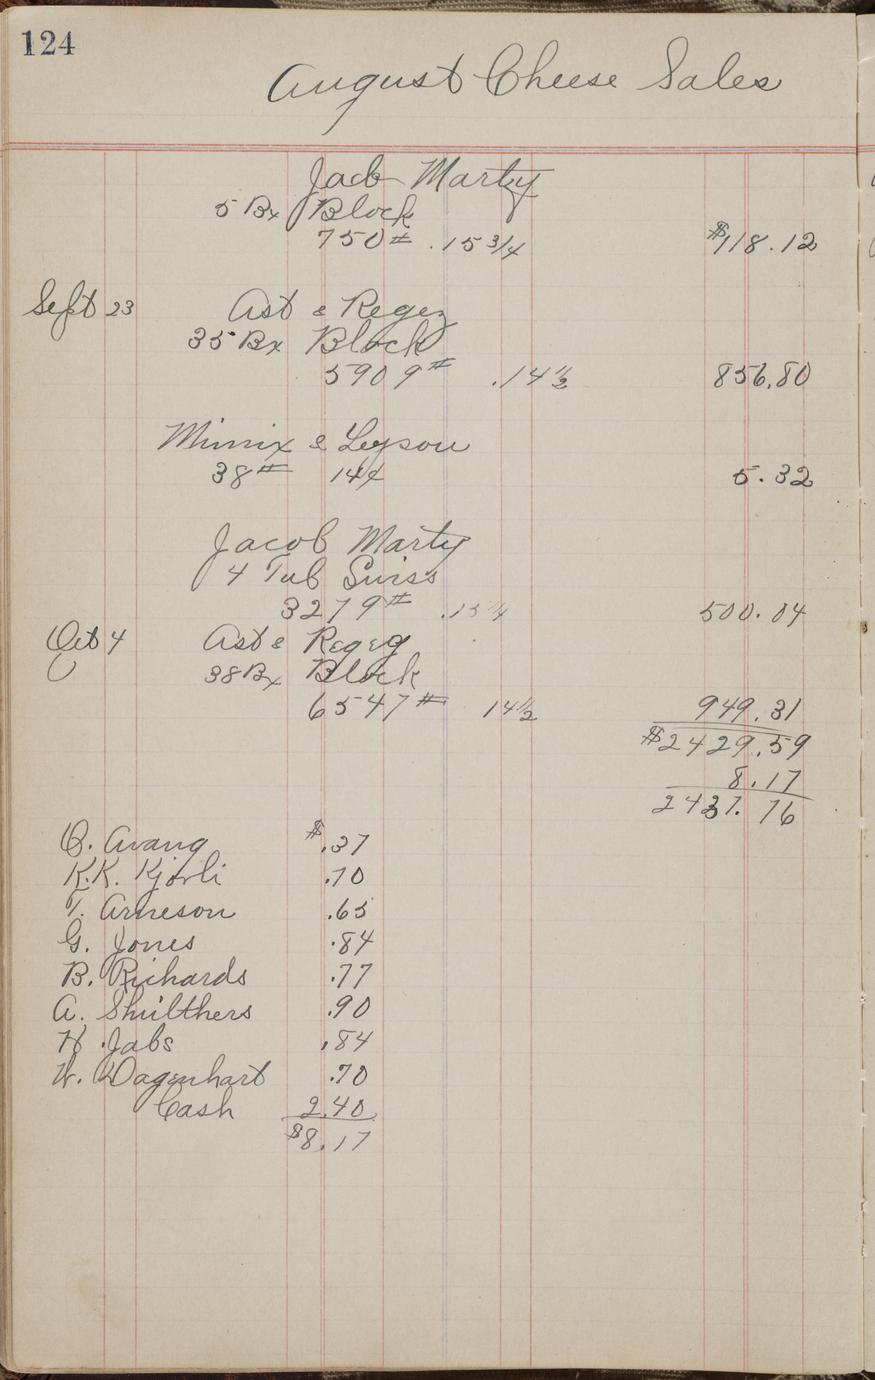 124
August Cheese Sales
Jacb Marty
5 Bx Block
750# .15 3/4 $118.12
Sept 23 Ast & Regez
35 Bx Block
5909# .14 1/2 856.80
Mimix & Leyson
38# 14¢ 5.32
Jacob Marty
4 Tub Swiss
3279# .15 1/4 500.04
Oct 4 Ast & Regeg
38 Bx Block
6547# 14 1/2 949.31
$2429.59
8.17
2437.76
O. Avang $.37
K.K. Kjorli .70
T. Arneson .65
G. Jones .84
B. Richards .77
A. Shulthers .90
H. Jabs .84
W. Dagenhart .70
Cash 2.40
$8.17